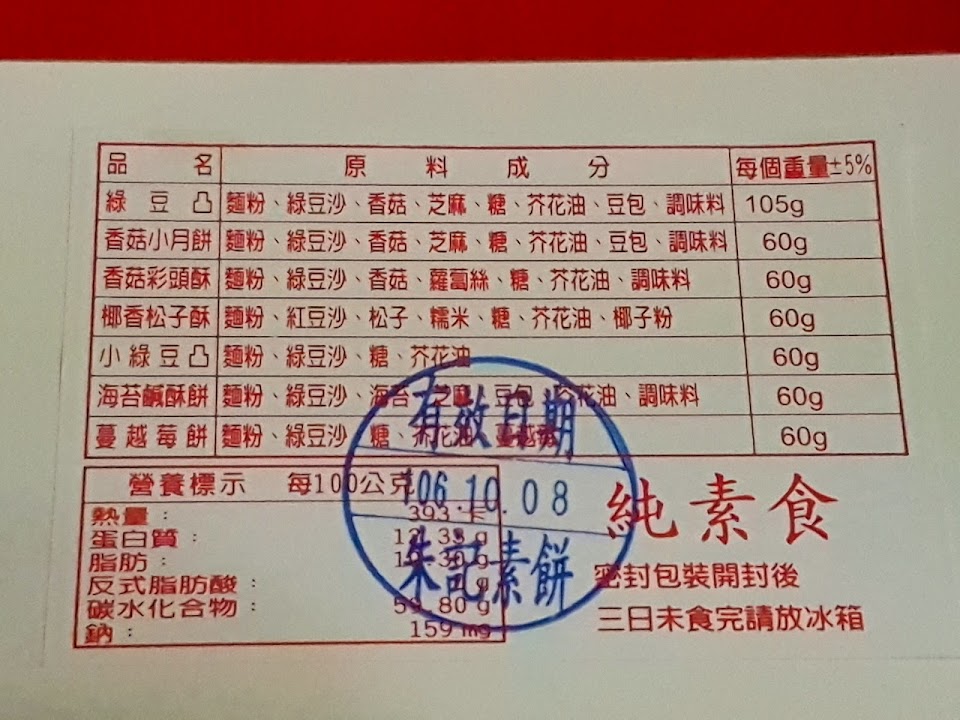 品名 原料成分 每個重量±5%
綠豆凸 麵粉、綠豆沙、香菇、芝麻、糖、芥花油、豆包、調味料 105g
香菇小月餅 麵粉、綠豆沙、香菇、芝麻、糖、芥花油、豆包、調味料 60g
香菇彩頭酥 麵粉、綠豆沙、香菇、蘿蔔絲、糖、芥花油、調味料 60g
椰香松子酥 麵粉、紅豆沙、松子、糯米、糖、芥花油、椰子粉 60g
小綠豆凸 麵粉、綠豆沙、糖、芥花油 60g
海苔鹹酥餅 麵粉、綠豆沙、海苔、芝麻、豆包、芥花油、調味料 60g
蔓越莓餅 麵粉、綠豆沙、糖、芥花油、蔓越莓 60g
有效日期
106.10.08
朱記素餅
營養標示 每100公克
熱量: 393 卡
蛋白質:
脂肪:
反式脂肪酸: g
碳水化合物: 80 g
鈉: 159 mg
純素食
密封包裝開封後
三日未食完請放冰箱